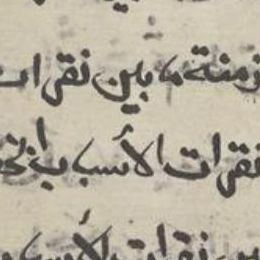 زمنة ما بين نقرات
نقرات الأسباب الخ
بين نقرات الأسباب